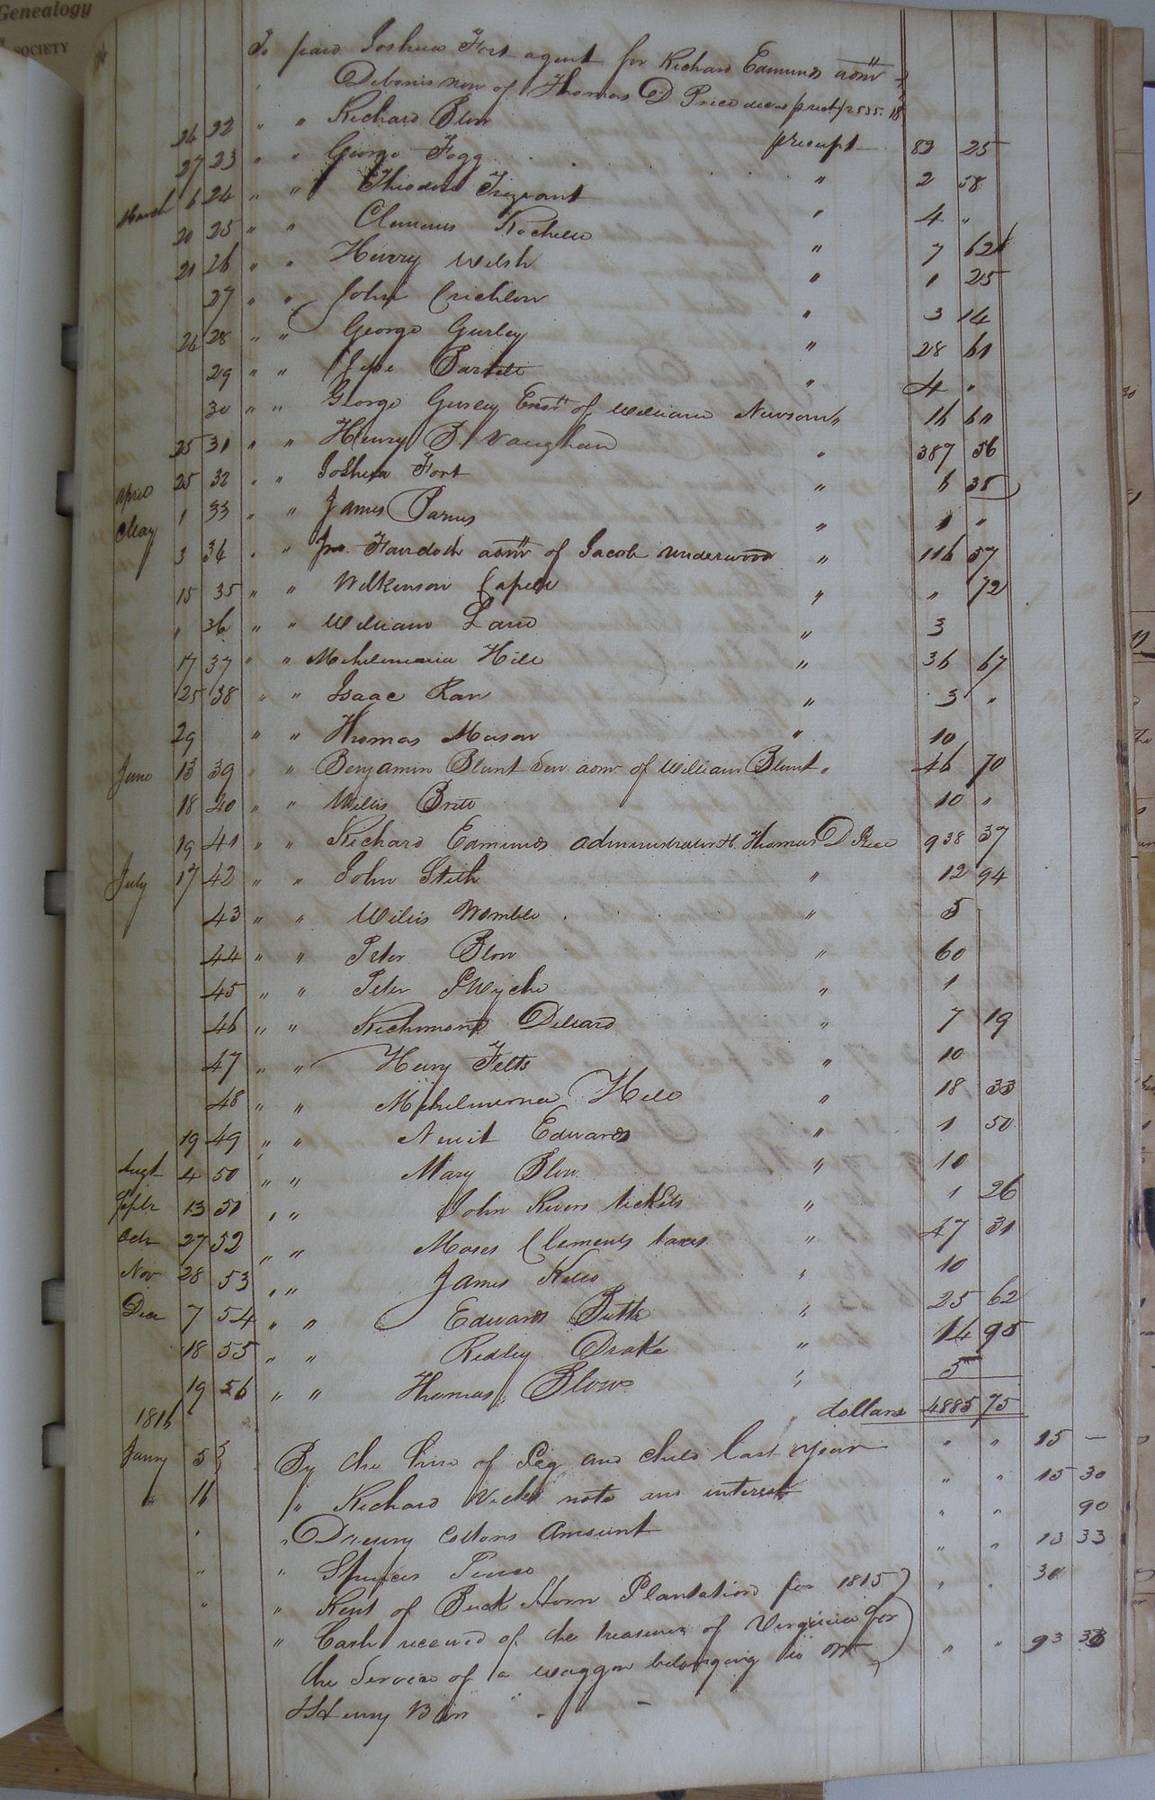 Genealogy
SOCIETY
To paid Joshua Fort agent for Richard Edmunds admr
Debonis non of Thomas D Price decd
26 22 " " Richard Blow prect 83 25
27 23 " " George Fogg " 2 58
March 6 24 " " Theodore Trezvant " 4 "
20 25 " " Clements Rochelle " 7 62
21 26 " " Henry Welsh " 1 25
27 " " John Crichlow " 3 14
24 28 " " George Gurley " 28 61
29 " " Jesse " 4 "
30 " " George Gurley Exor of William Newsom " 16 60
25 31 " " Henry B Vaughan " 387 56
April 25 32 " " Joshua Fort " 6 38
May 1 33 " " James " 1 "
3 34 " " admr of Jacob Underwood " 116 57
15 35 " " Wilkinson Capell " " 72
" 36 " " William Land " 3
17 37 " " Mehelmenia Hill " 36 67
25 38 " " Isaac Ran " 3 "
29 " " Thomas Mason " 10
June 13 39 " " Benjamin Blunt Sen admr of William Blunt " 46 70
18 40 " " Willis Britt 10 "
19 41 " " Richard Edmunds administrator of Thomas D Price 938 37
July 17 42 " " John Stith " 12 94
43 " " Willis Womble " 5
44 " " Peter Blow " 60
45 " " Peter P Wyche " 1
46 " " Richmond Dillard " 7 19
47 " " Henry Felts " 10
48 " " Mehelmenia Hill " 18 33
19 49 " " Newit Edwards " 1 50
Augt 4 50 " " Mary Blow " 10
Septr 13 51 " " John Rivers tickets " 1 26
Octr 27 52 " " Moses Clements taxes " 47 31
Nov 28 53 " " James Kello " 10
Dec 7 54 " " Edwards Butts " 25 62
18 55 " " Ridley Drake " 14 95
19 56 " " Thomas Blow " 5
1816 dollars 4885 75
Janry 5 By the hire of Peg and child last year " " 15 —
" 16 " Richard Vicks note and interest " " 15 30
" " Drewry Cottons Amount " " 90
" " Spencer " " 13 33
" " Rent of Buck Horn Plantation for 1815 " " 30
" Cash received of the treasurer of Virginia for
the Service of a waggon belonging to Mr " " 93 33
Henry Blow